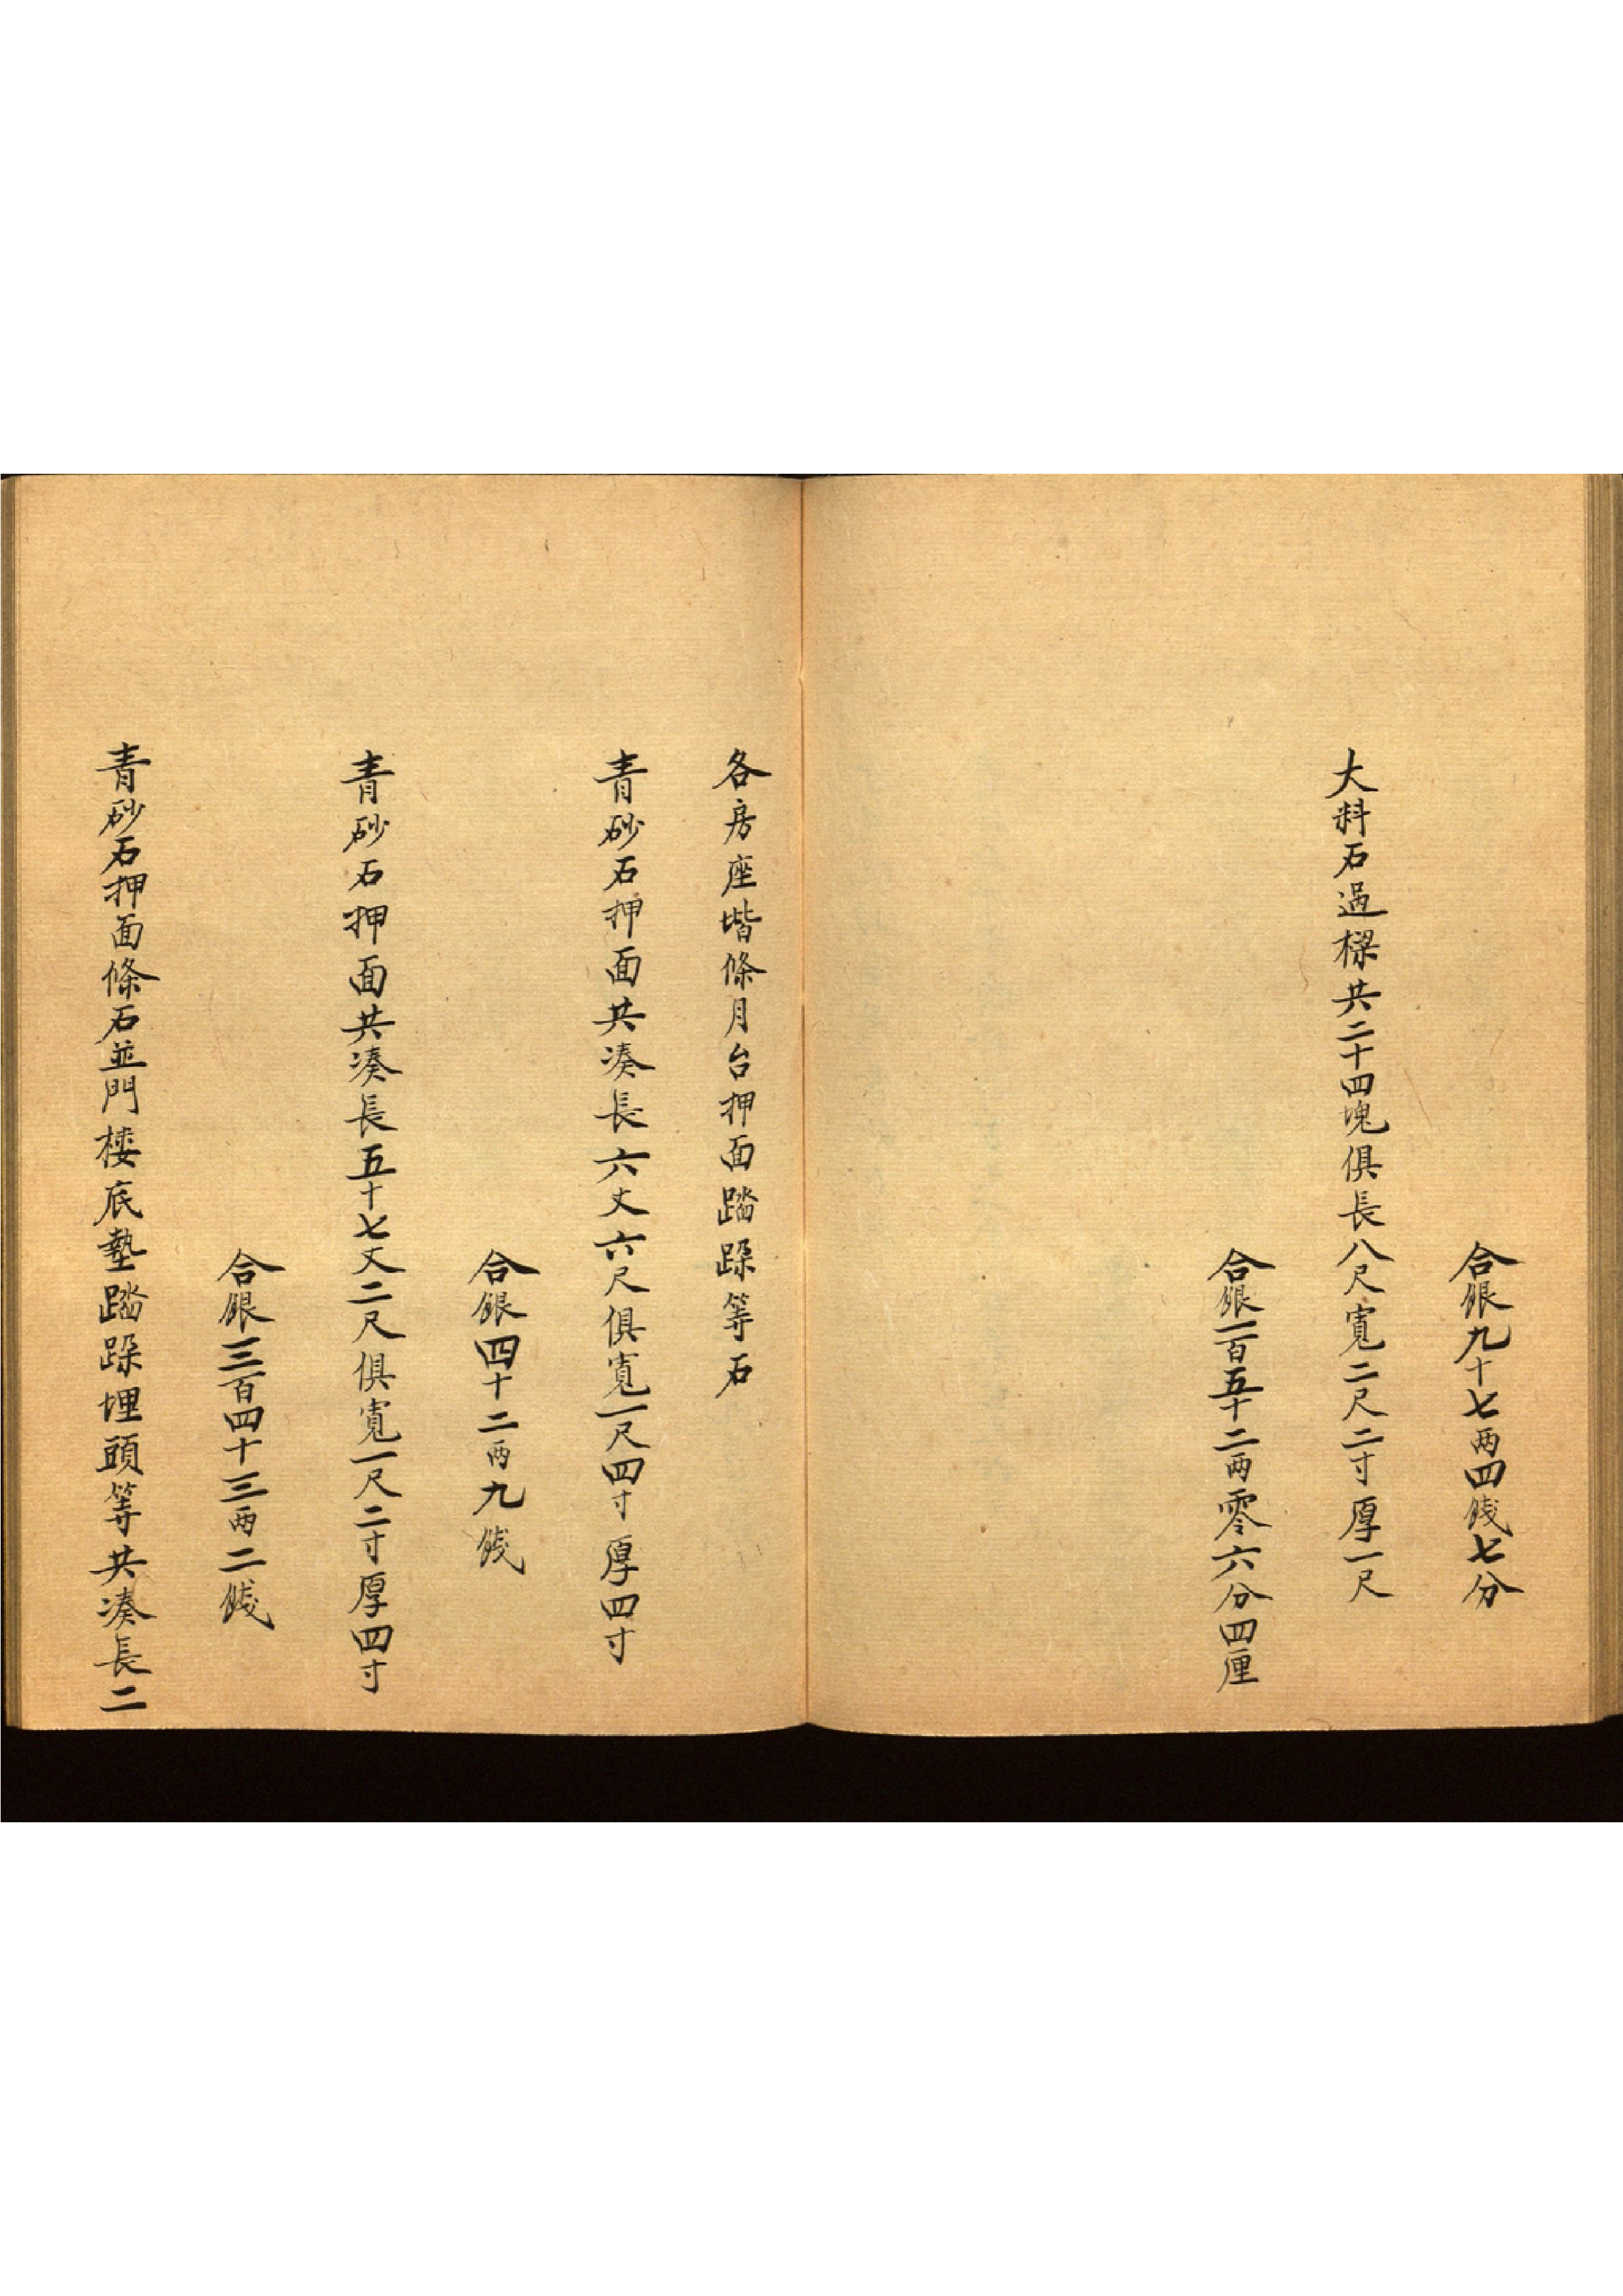 合銀九十七两四錢七分
大料石過樑共二十四塊俱長八尺寬二尺二寸厚一尺
合銀一百五十二两零六分四厘
各房座堦條月台押面踏跺等石
青砂石押面共湊長六丈六尺俱寬一尺四寸厚四寸
合銀四十二两九錢
青砂石押面共湊長五十七丈二尺俱寬一尺二寸厚四寸
合銀三百四十三两二錢
青砂石押面條石並門楼底墊踏跺埋頭等共湊長二